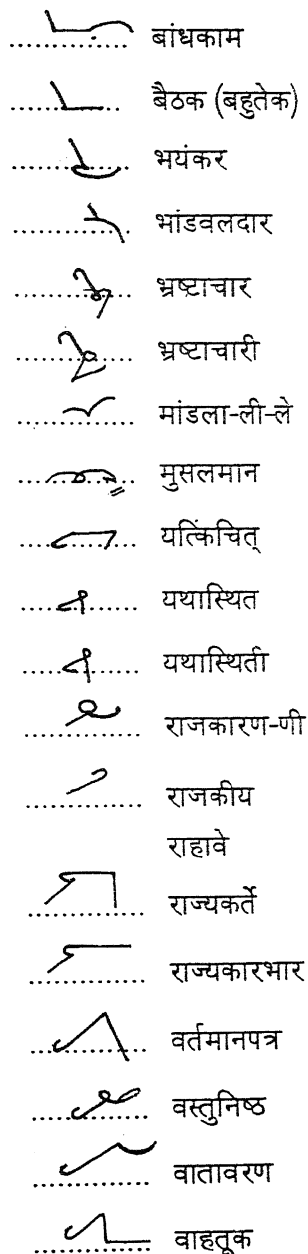 बांधकाम
बैठक (बहुतेक)
भयंकर
भांडवलदार
भ्रष्टाचार
भ्रष्टाचारी
मांडला-ली-ले
मुसलमान
यत्किंचित्
यथास्थित
यथास्थिती
राजकारण-णी
राजकीय
राहावे
राज्यकर्ते
राज्यकारभार
वर्तमानपत्र
वस्तुनिष्ठ
वातावरण
वाहतूक